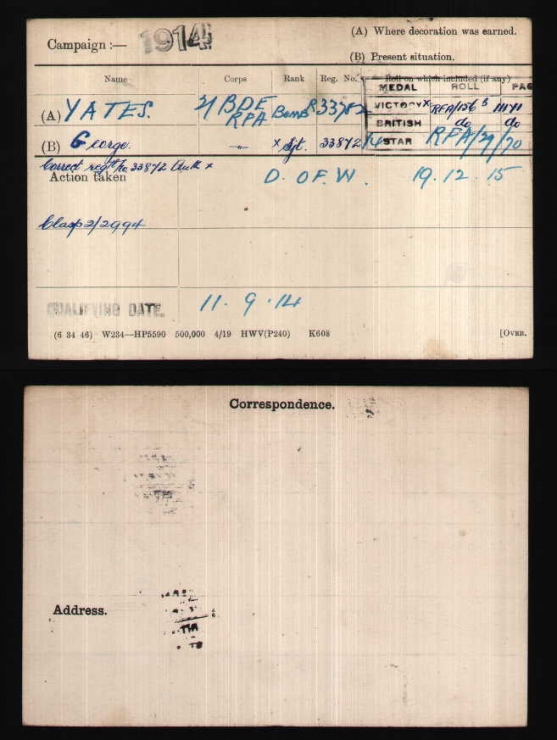 Campaign :— 1914
(A) Where decoration was earned.
(B) Present situation.
Name Corps Rank Reg. No. Roll on which included (if any)
MEDAL ROLL PAG
(A) YATES. BDE RFA Bomb
VICTORY x RFA/156 B
BRITISH do do
(B) George. —„— x Sjt. 33872 14 STAR RFA/29/20
Correct regtl No 33872 x
Action taken D. OF. W. 19. 12. 15
Clasp 2/2994
QUALIFYING DATE. 11. 9. 14
(6 34 46) W234—HP5590 500,000 4/19 HWV(P240) K608 [OVER.
Correspondence.
Address.